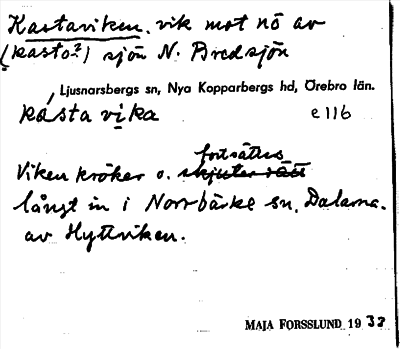 Kastaviken. vik mot nö av
(kasto?) sjön N. Bredsjön
Ljusnarsbergs sn, Nya Kopparbergs hd, Örebro län.
kásta vi̥ka e 116
fortsättes
Viken kröker o. skjuter rätt
långt in i Norrbärke sn. Dalarna.
av Hyttviken.
MAJA FORSSLUND 1938